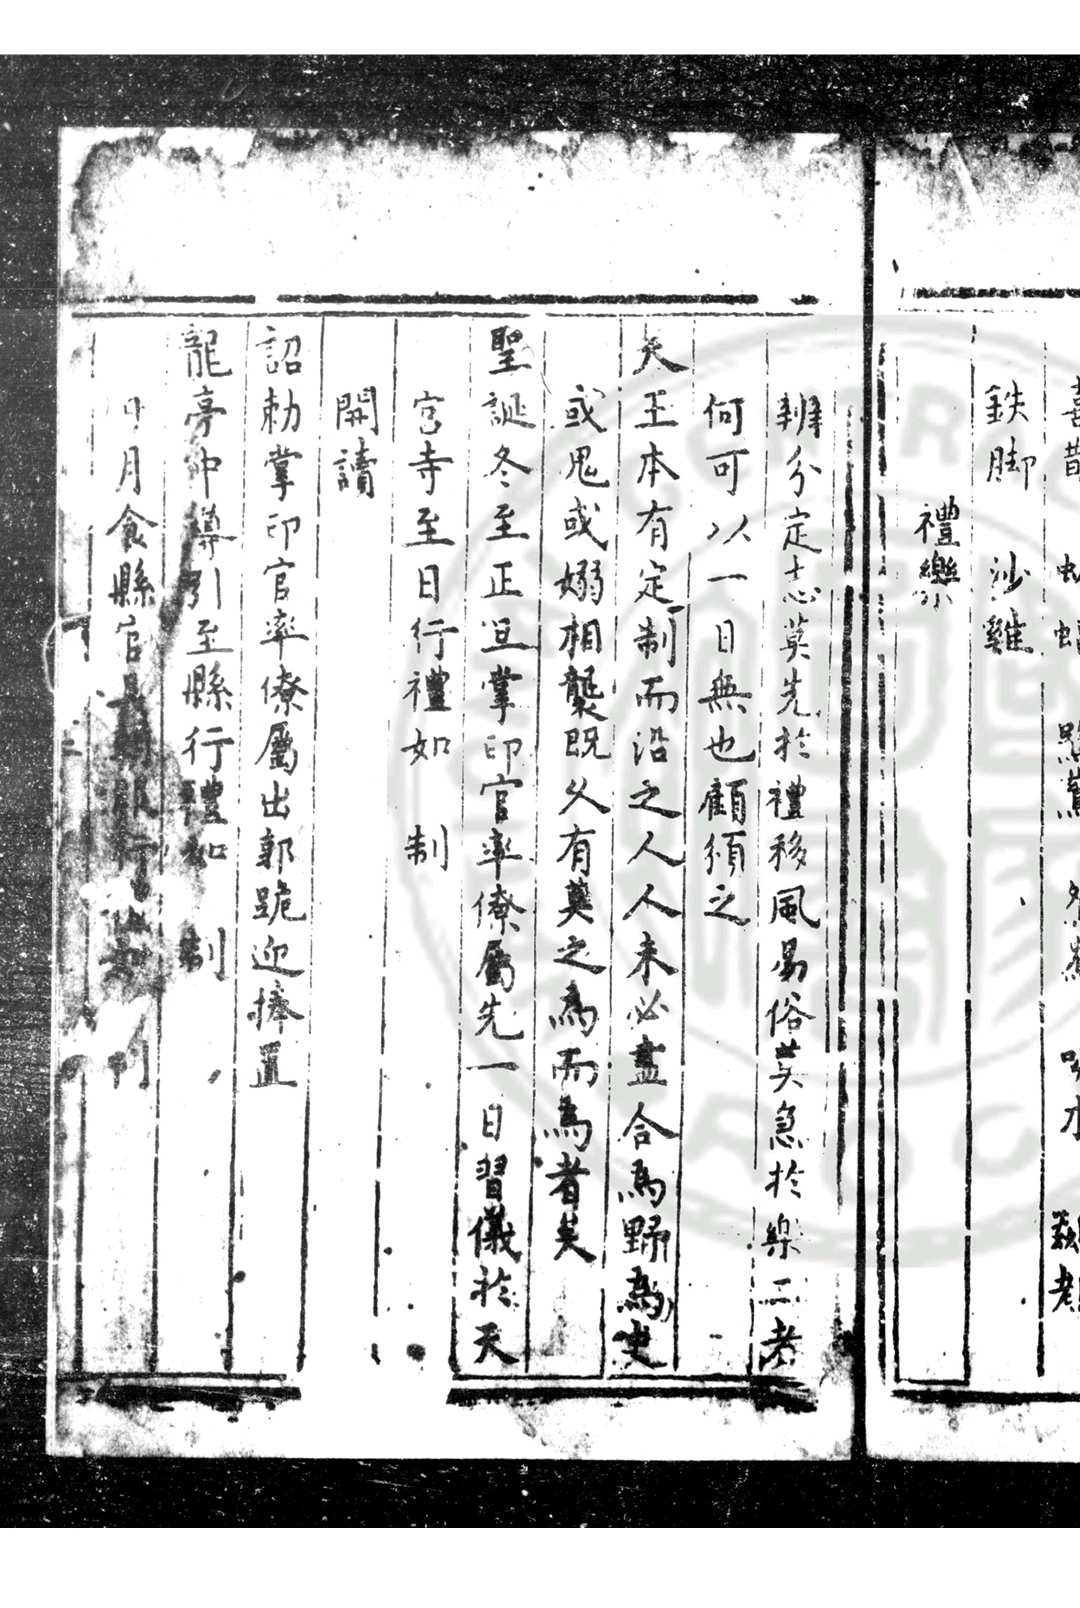 喜鵲
鉄脚 沙雞
禮樂
辨分定志莫先於禮移風易俗莫急於樂二者
何可以一日無也顧須之
天王本有定制而沿之人人未必盡合為野為史
或鬼或嫋相襲既久有莫之為而為者矣
聖誕冬至正旦掌印官率僚屬先一日習儀於天
宮寺至日行禮如 制
開讀
詔勅掌印官率僚屬出郭跪迎捧置
龍亭中導引至縣行禮如 制
日月食縣官具朝服行